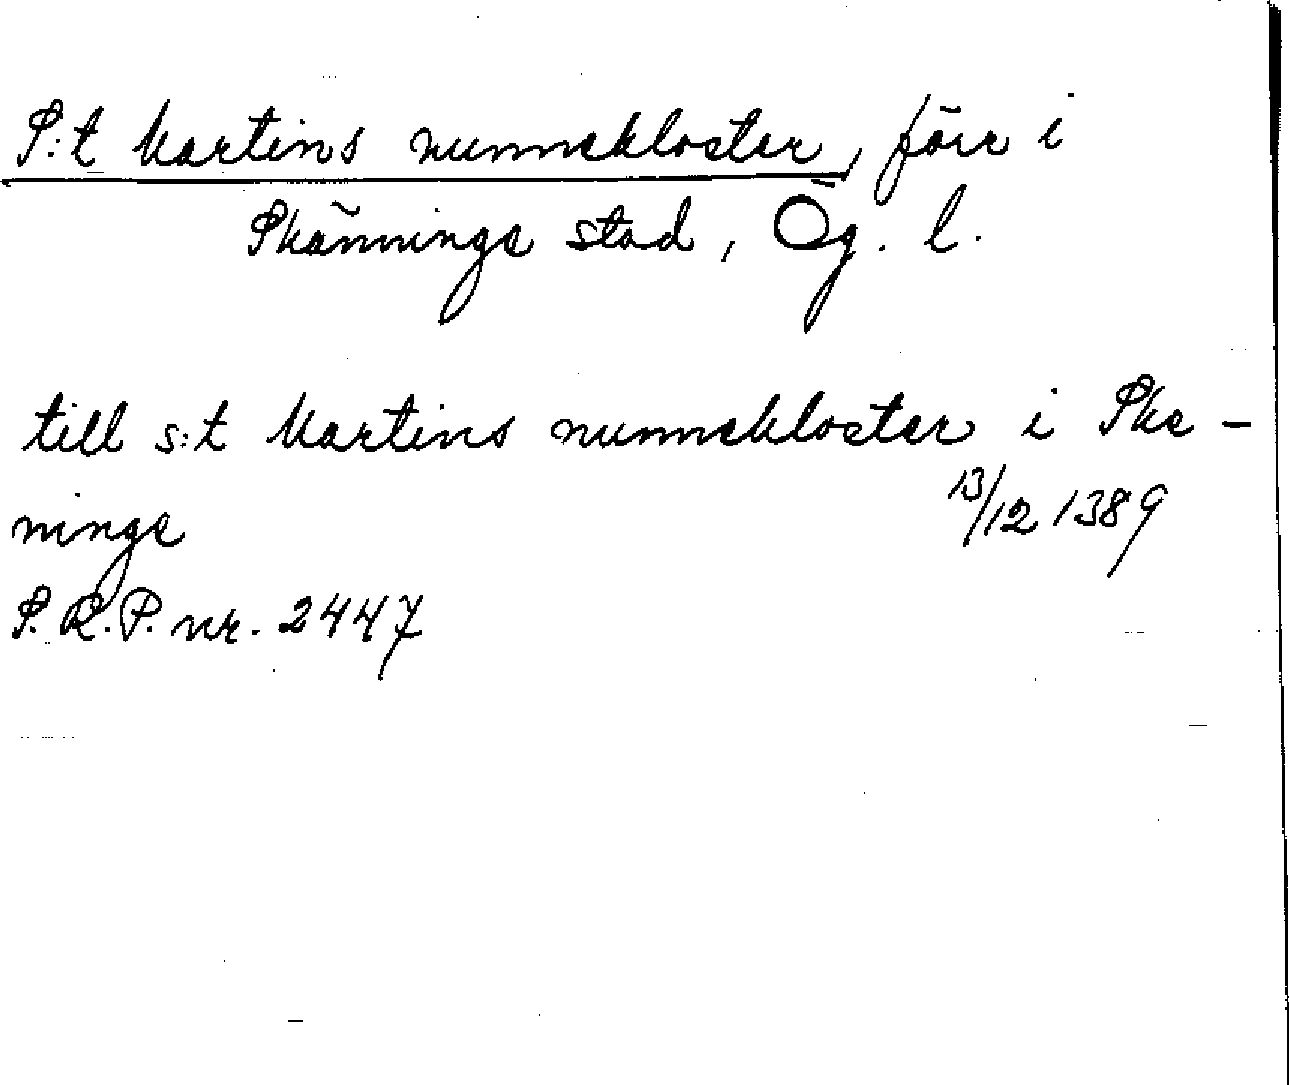 S:t Martins nunnekloster, förr i
Skänninge stad, Ög. l.
till s:t Martins nunnekloster i Ske-
ninge 13/12 1389
S.R.P. nr. 2447